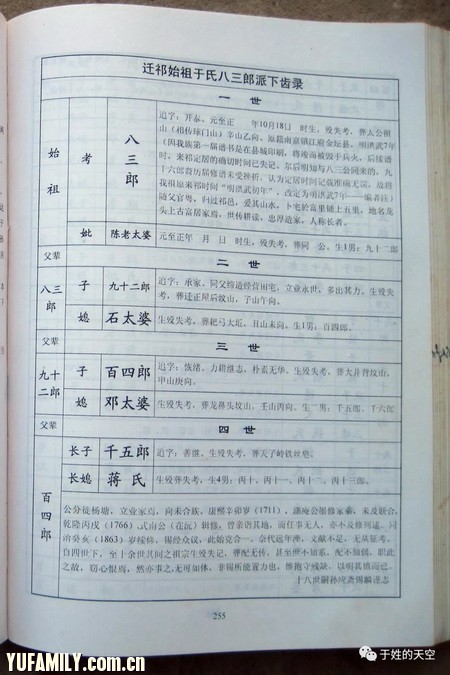 迁祁始祖于氏八三郎派下齿录
一 世
始祖
考
八三郎
追字：开泰、元至正 年10月18日 时生，殁失考，葬太公祖
山（相传球门山）辛山乙向。原籍南京镇江府金坛县。明洪武7年
（因我族第一届谱书是在县城印刷，将竣而被毁于兵火，后续谱
时，来祁定居的确切时间已失记。
我祖原来祁时间“明洪武初年”，改定为明洪武7年——编者注）
随父官粤，归过祁邑，爱其山水，卜宅於富里铺上五里，地名龙
头上古富居家焉，世传耕读，忠厚造家，人称长者。
妣
陈老太婆
元至正年 月 日 时生，殁失考，葬同 公。生1男：九十二郎
父辈
二 世
八三郎
子
九十二郎
追字：承家。阿父缔造经营田宅，立业永世，多出其力。生殁失
考，葬迁正屋后坟山，子山午向。
媳
石太婆
生殁失考，葬耙弓大坵，丑山未向。生1男：百四郎。
父辈
三 世
九十二郎
子
百四郎
追字：恢绪。力耕继志，朴素无华。生殁失考，葬大井背坟山，
甲山庚向。
媳
邓太婆
生殁失考，葬龙鼻头坟山，壬山丙向。生二男：千五郎、千六郎
父辈
四 世
百四郎
长子
千五郎
追字：善继。生殁失考，葬天子岭铁丝皂。
长媳
蒋 氏
生殁葬失考，生4男：丙十、丙十一、丙十二、丙十三郎。
公分徙杨塘，立业家焉，向未合族，康熙辛卯岁（1711），
乾隆丙戌（1766），武南公（在沅）辑修，曾亲诣其地，而任事无人，亦不及修同谱。同
治癸亥（1863）岁续修，锡经众议，此始克合一。奈代远年湮，文献不足，无从征考。
自四世下，至十余世其间之祖宗生殁失记，葬配无传，甚至世不知系，配不知偶，职此
之故，窃心恨焉，然亦事之无可如何，非锡所能置力也，惟抱守残缺，以明其慎而已。
十八世嗣孙应斋锡麟谨志
255
于姓的天空
YUFAMILY.com.cn